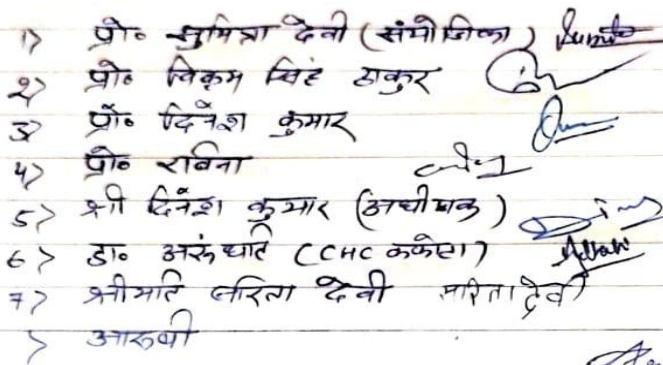 1> प्रो॰ सुमित्रा देवी (संयोजिका)
2> प्रो॰ विक्रम सिंह ठाकुर
3> प्रो॰ दिनेश कुमार
4> प्रो॰ रविना
5> श्री दिनेश कुमार (अधीक्षक)
6> डा॰ अरुंधति (CHC ककोटा)
7> श्रीमति सरिता देवी सरिता देवी
> आरुषी